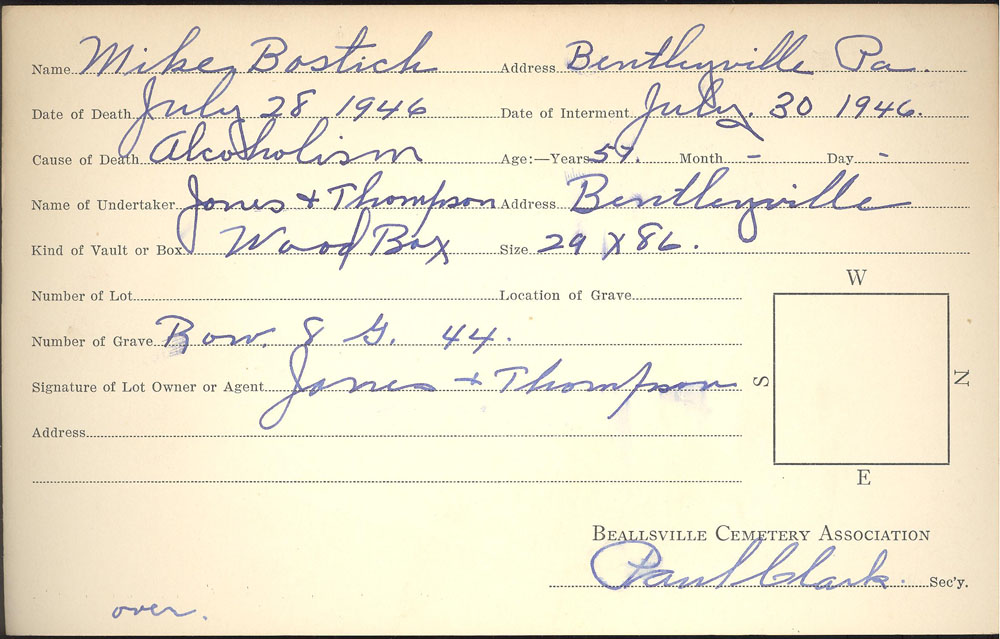 Name Mike Bostich Address Bentleyville Pa.
Date of Death July 28 1946 Date of Interment July. 30 1946.
Cause of Death Alcoholism Age:—Years 57. Month - Day -
Name of Undertaker Jones + Thompson Address Bentleyville
Kind of Vault or Box Wood Box Size 29 X 86.
Number of Lot Location of Grave
W
Number of Grave Row. 8 G. 44.
Signature of Lot Owner or Agent Jones + Thompson
S N
Address
E
BEALLSVILLE CEMETERY ASSOCIATION
Paul Clark. Sec'y.
over.